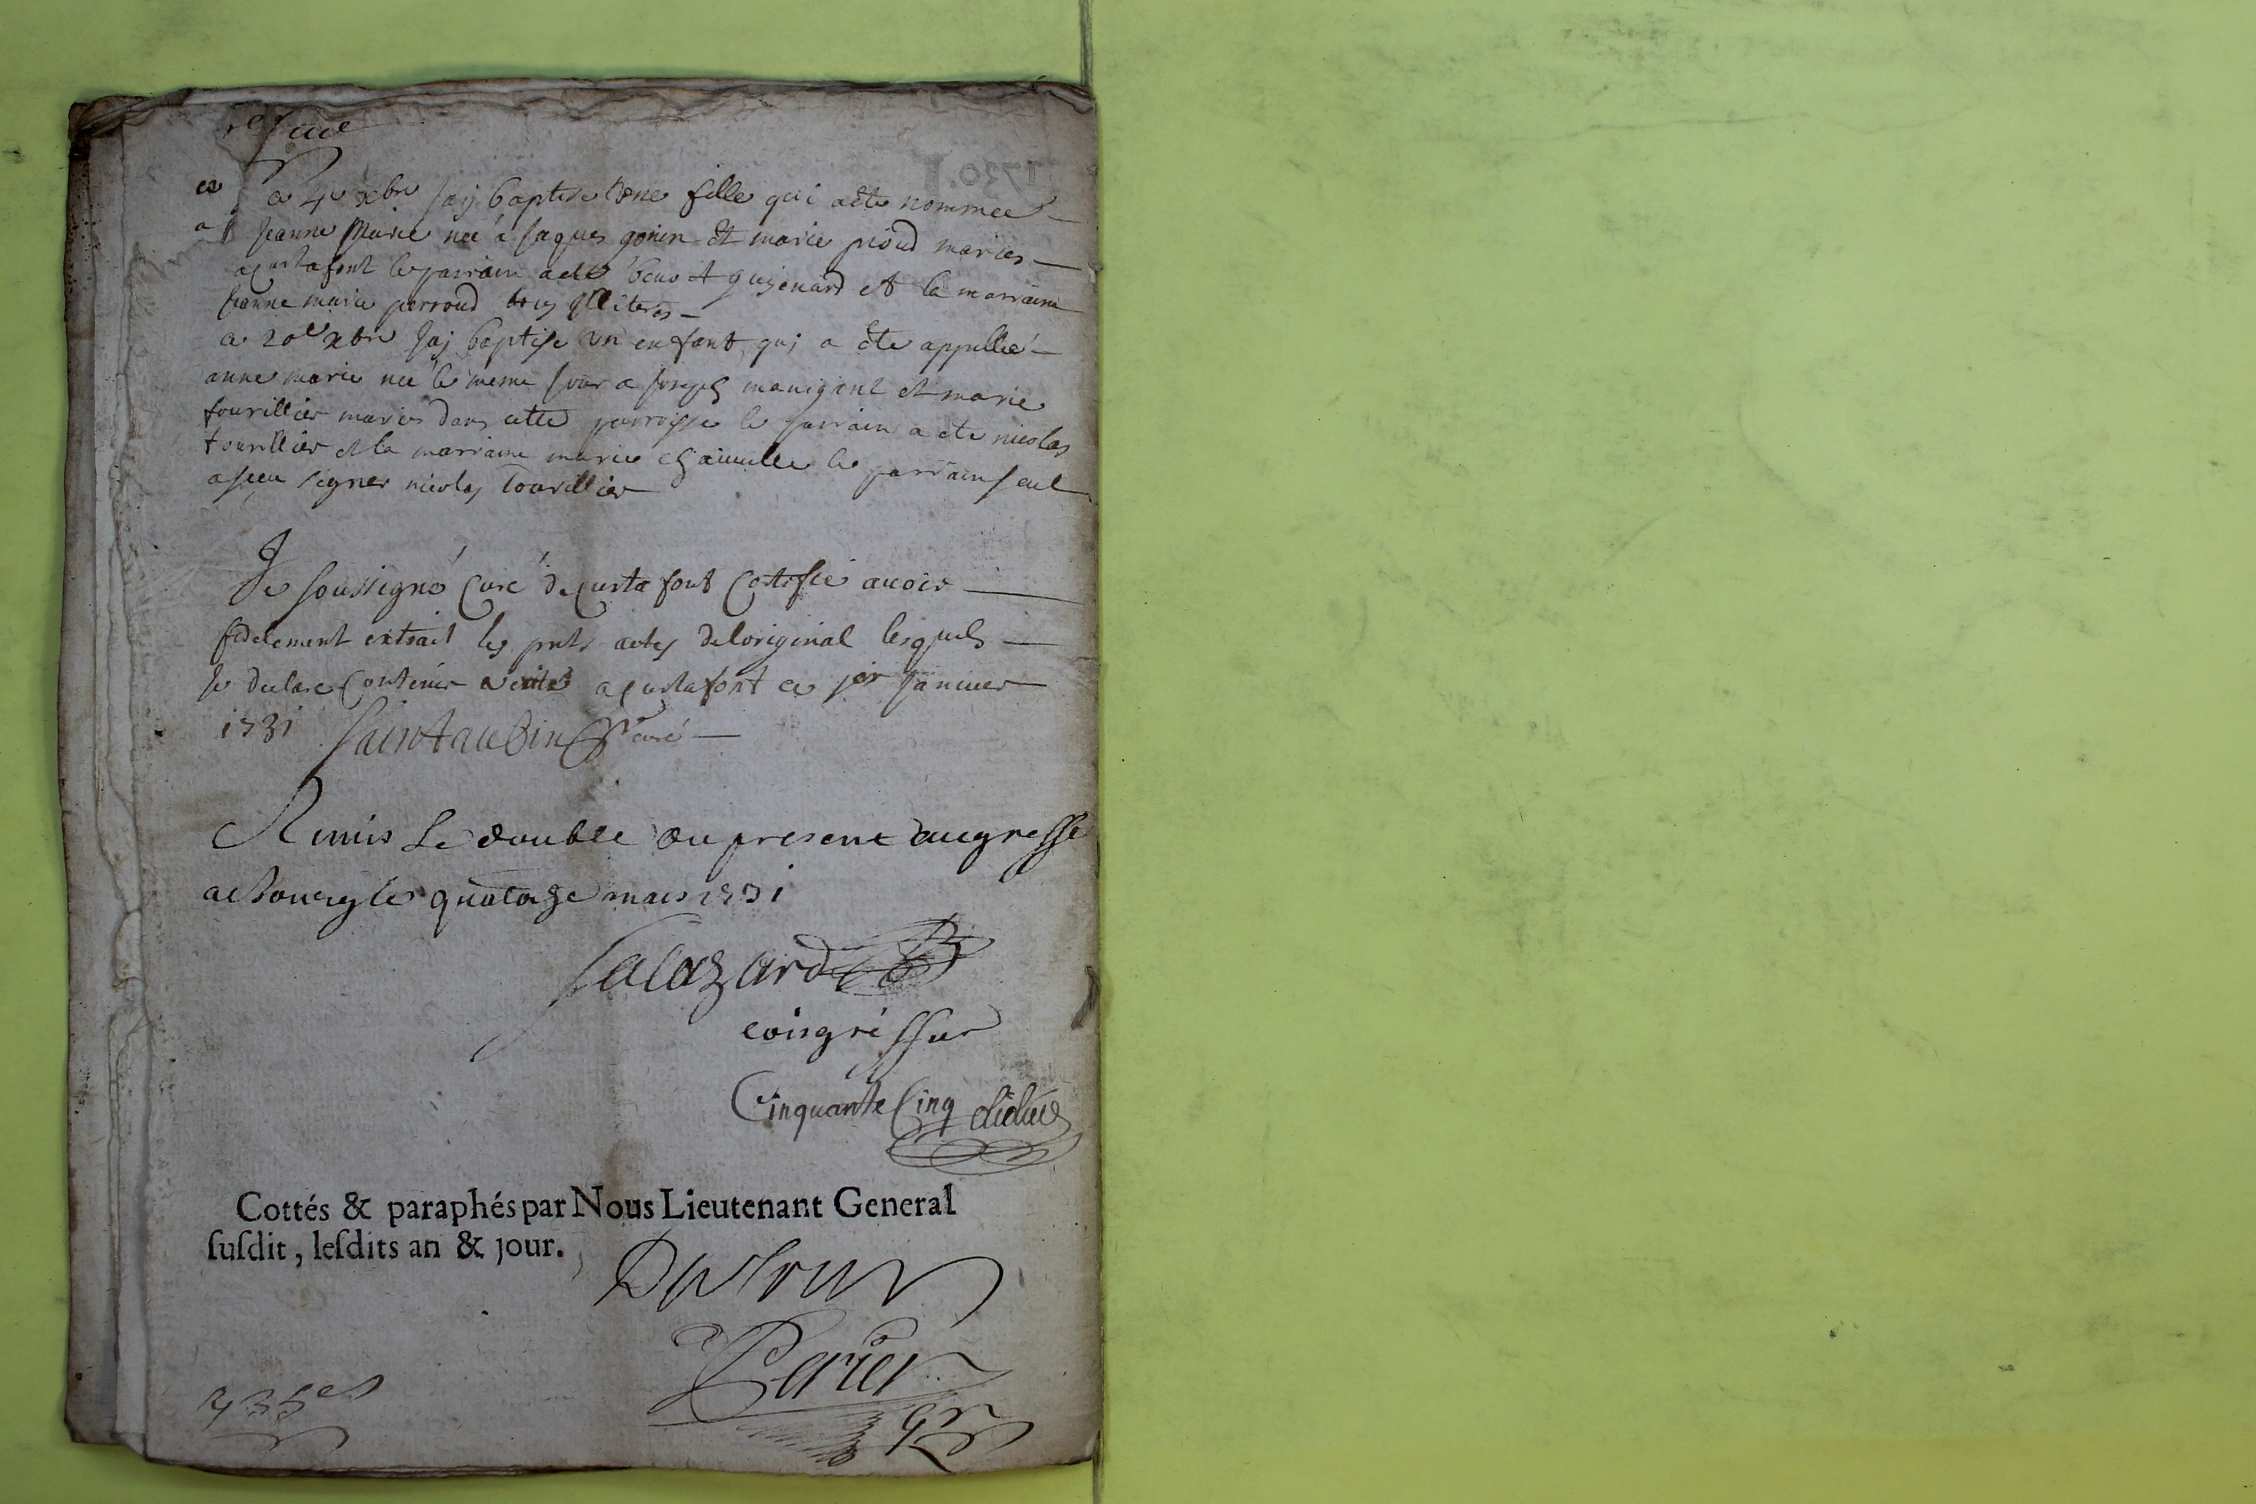 ce 4e xbre Jay baptise Une fille qui a ete nommee
Jeanne Marie neé a Jaques gonin et marie proud maries
a curtafont le parrain a ete benoit guigenard et la marraine
Jeanne marie perroud tous illiteres
ce 20e xbre Jaj baptise un enfant qui a ete appellé
anne marie neé le meme Jour a Joseph manigant et marie
tourillier maries dans cette parroisse le parrain a ete nicolas
tourillier et la marraine marie le parrain seul
a sceu signer nicolas tourillier
Je soussigné Curé de Curtafont Certifie avoir
fidelement extrait les pnts actes de loriginal lesquels
Je declare Contenir verité a Curtafont ce jer Janvier
1731 Saintaubin curé
Remis Le double du present au greffe
de bourg le quatorze mars 1731
Salazard
Cinquante Cinq
Cottés & paraphés par Nous Lieutenant General
ſuſdit, leſdits an & jour.
Perier
1730.